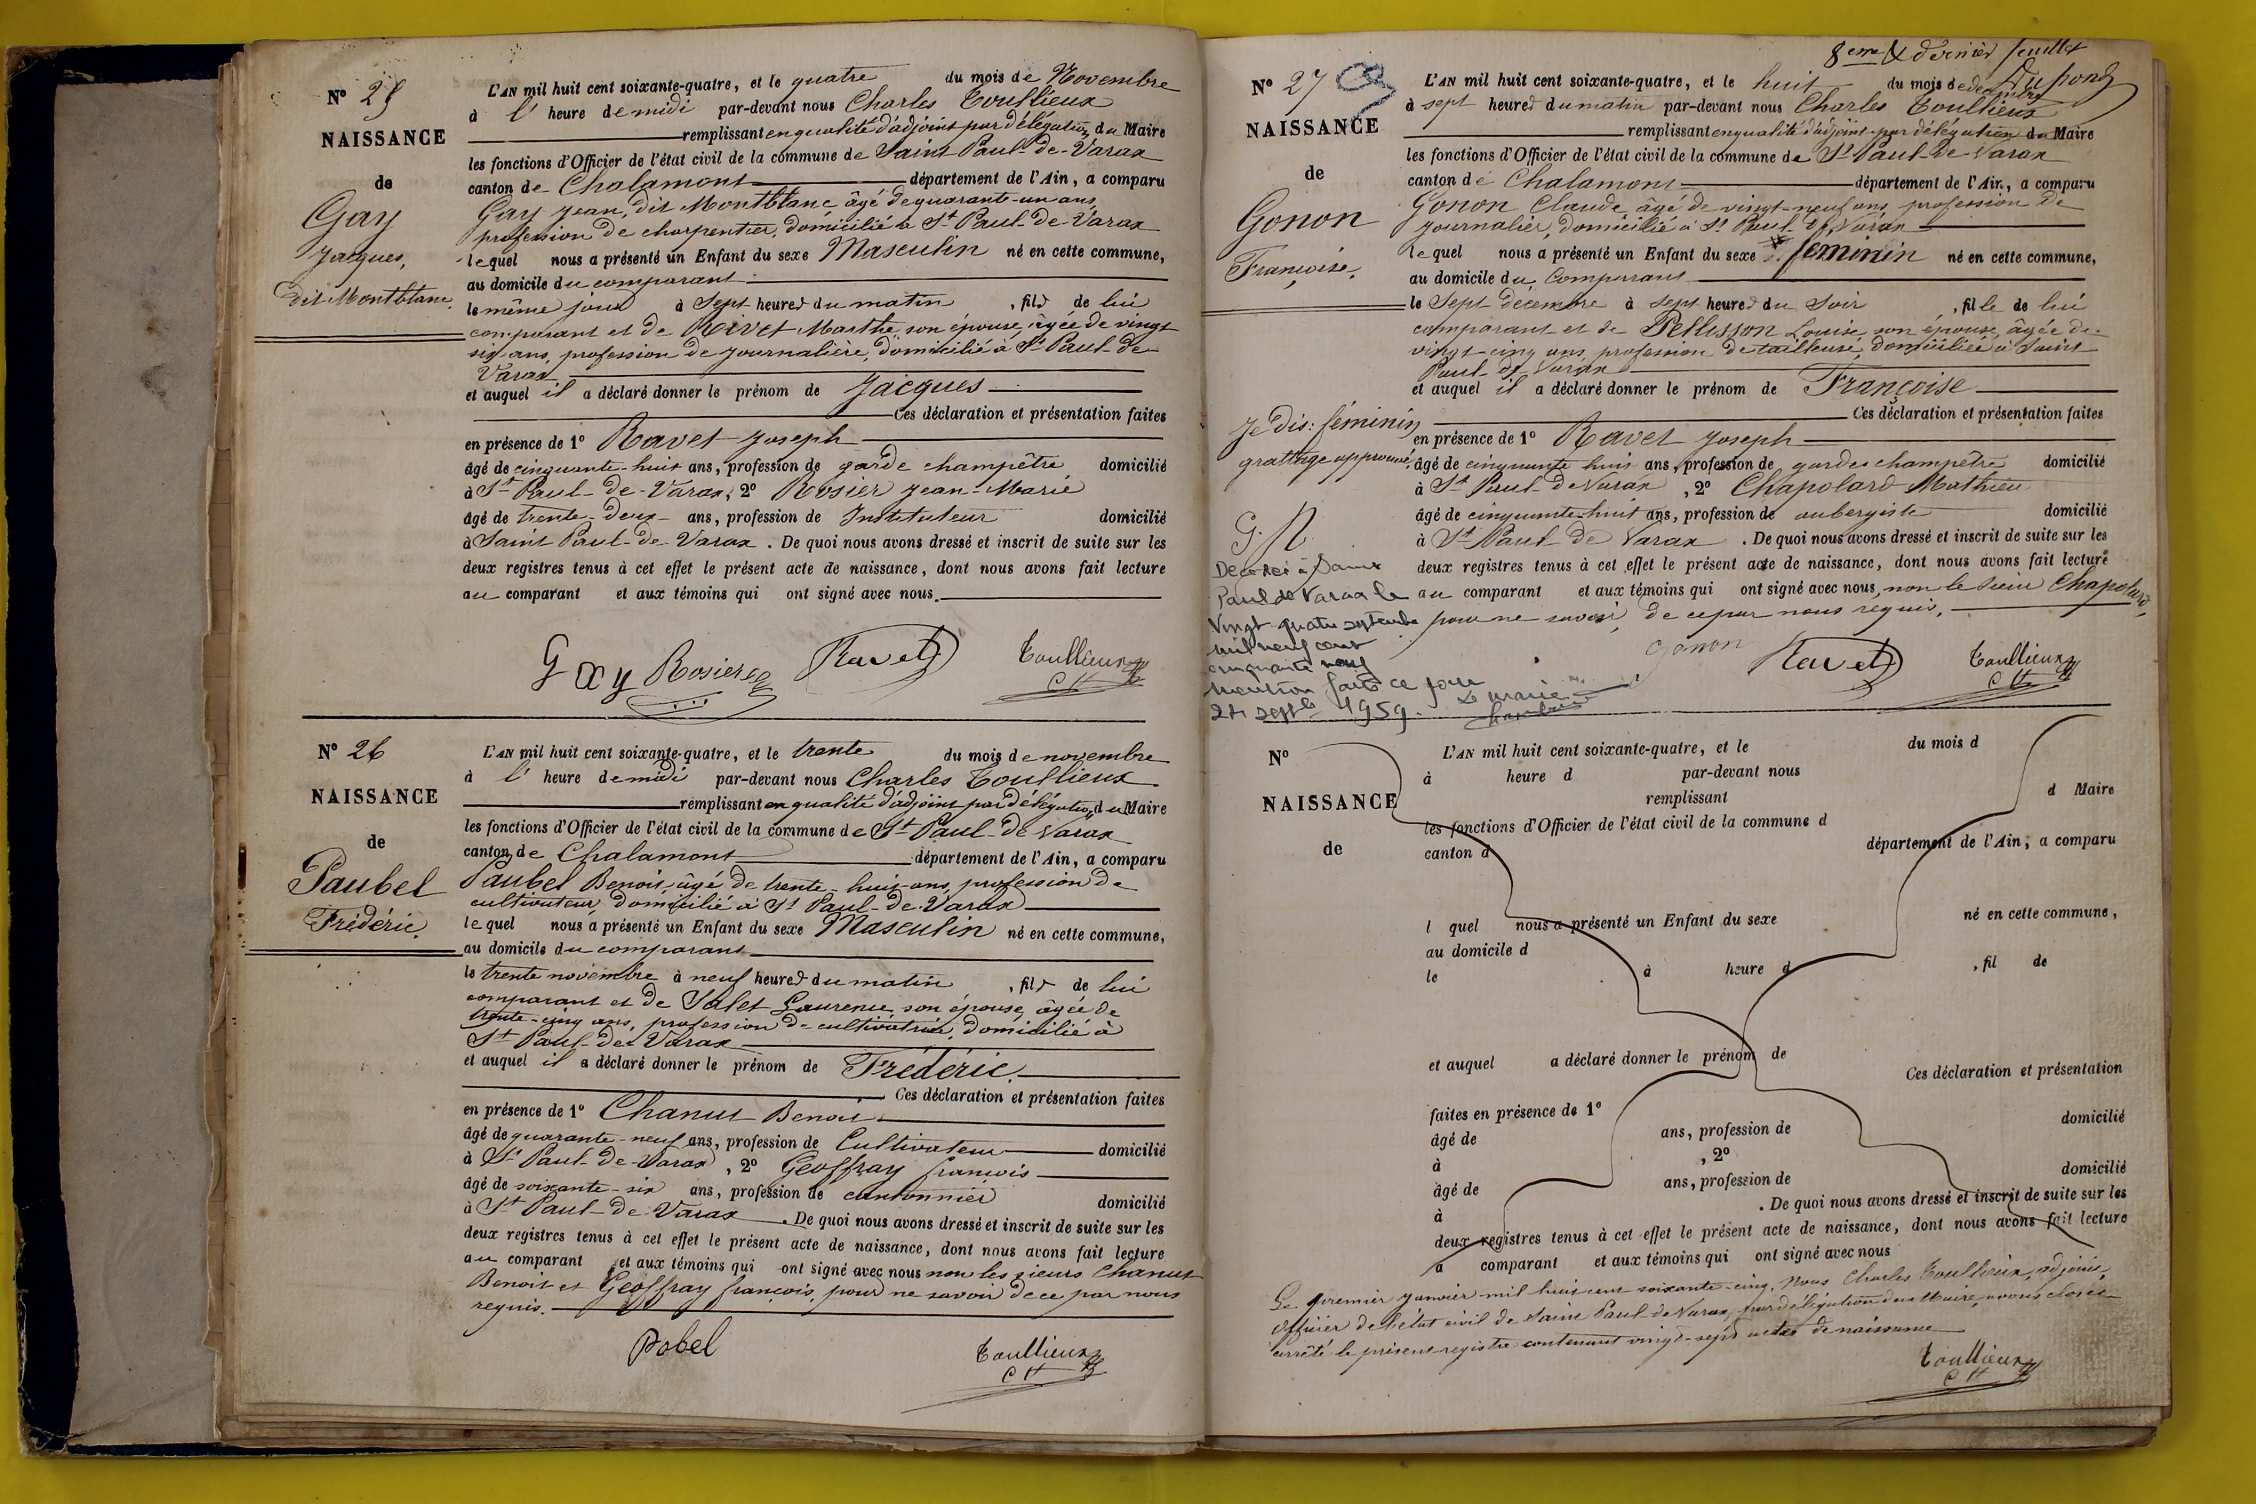 N° 25
NAISSANCE
de
Gay
Jacques,
dit Montblanc.
L'AN mil huit cent soixante-quatre, et le quatre du mois de Novembre
à l' heure de midi par-devant nous Charles Toullieux
remplissant en qualité d'adjoint par délégation du Maire
les fonctions d'Officier de l'état civil de la commune de Saint Paul-de-Varax
canton de Chalamont département de l'Ain, a comparu
Gay Jean, dit Montblanc âgé de quarante-un ans,
profession de charpentier, domicilié à St Paul-de-Varax
lequel nous a présenté un Enfant du sexe Masculin né en cette commune,
au domicile du comparant
le même jour à Sept heures du matin, fils de lui
comparant et de Rivet Marthe son épouse, âgée de vingt
six ans, profession de journalière, domicilié à St Paul-de-
Varax
et auquel il a déclaré donner le prénom de Jacques
Ces déclaration et présentation faites
en présence de 1° Ravet Joseph
âgé de cinquante-huit ans, profession de garde champêtre domicilié
à St Paul-de-Varax, 2° Rosier Jean-Marie
âgé de trente-deux ans, profession de Instituteur domicilié
à Saint Paul-de-Varax. De quoi nous avons dressé et inscrit de suite sur les
deux registres tenus à cet effet le présent acte de naissance, dont nous avons fait lecture
au comparant et aux témoins qui ont signé avec nous.
Gay Rosier Ravet Toullieux
CH
N° 26
NAISSANCE
de
Paubel
Frédéric.
L'AN mil huit cent soixante-quatre, et le trente du mois de novembre
à l' heure de midi par-devant nous Charles Toullieux
remplissant en qualité d'adjoint par délégation du Maire
les fonctions d'Officier de l'état civil de la commune de St Paul-de Varax
canton de Chalamont département de l'Ain, a comparu
Paubel Benoit âgé de trente-huit ans, profession de
cultivateur domicilié à St Paul-de-Varax
lequel nous a présenté un Enfant du sexe Masculin né en cette commune,
au domicile du comparant
le trente novembre à neuf heures du matin, fils de lui
comparant et de Salet Laurence son épouse, âgée de
trente-cinq ans, profession de cultivatrice, domicilié à
St Paul-de-Varax
et auquel il a déclaré donner le prénom de Frédéric.
Ces déclaration et présentation faites
en présence de 1° Chanut Benoit
âgé de quarante-neuf ans, profession de Cultivateur domicilié
à St Paul-de-Varax, 2° Geoffray françois
âgé de soixante-six ans, profession de cantonnier domicilié
à St Paul-de-Varax. De quoi nous avons dressé et inscrit de suite sur les
deux registres tenus à cet effet le présent acte de naissance, dont nous avons fait lecture
au comparant et aux témoins qui ont signé avec nous non les sieurs Chanut
Benoit et Geoffray françois, pour ne savoir de ce par nous
requis.
Pobel Toullieux
CH
8eme & dernier feuillet
N° 27
NAISSANCE
de
Gonon
Françoise.
Je dis: féminin
grattage approuvé.
G. R
Décédée à Saint
Paul de Varax le
vingt quatre septembre
mil neuf cent
cinquante neuf
Mention faite ce jour
24 septbre 1959. Le maire
L'AN mil huit cent soixante-quatre, et le huit du mois de décembre
à sept heures du matin par-devant nous Charles Toullieux
remplissant en qualité d'adjoint par délégation du Maire
les fonctions d'Officier de l'état civil de la commune de St Paul-de-Varax
canton de Chalamont département de l'Ain, a comparu
Gonon Claude âgé de vingt-neuf ans, profession de
journalier, domicilié à St Paul-de Varax
lequel nous a présenté un Enfant du sexe féminin né en cette commune,
au domicile du Comparant
le Sept décembre à sept heures du soir, fille de lui
comparant et de Pellisson Louise son épouse, âgée de
vingt-cinq ans, profession de tailleuse, domiciliée à Saint
Paul-de Varax
et auquel il a déclaré donner le prénom de Françoise
Ces déclaration et présentation faites
en présence de 1° Ravet Joseph
âgé de cinquante huit ans, profession de gardes champêtre domicilié
à St Paul-de Varax, 2° Chapolard Mathieu
âgé de cinquante-huit ans, profession de aubergiste domicilié
à St Paul-de Varax. De quoi nous avons dressé et inscrit de suite sur les
deux registres tenus à cet effet le présent acte de naissance, dont nous avons fait lecture
au comparant et aux témoins qui ont signé avec nous, non le sieur Chapolard,
pour ne savoir, de ce par nous requis.
Gonon Ravet Toullieux
CH
N°
NAISSANCE
de
L'AN mil huit cent soixante-quatre, et le du mois d
à heure d par-devant nous
remplissant d Maire
les fonctions d'Officier de l'état civil de la commune d
canton d département de l'Ain, a comparu
l quel nous a présenté un Enfant du sexe né en cette commune,
au domicile d
le à heure d, fil de
et auquel a déclaré donner le prénom de
Ces déclaration et présentation
faites en présence de 1°
âgé de ans, profession de domicilié
à, 2°
âgé de ans, profession de domicilié
à. De quoi nous avons dressé et inscrit de suite sur les
deux registres tenus à cet effet le présent acte de naissance, dont nous avons fait lecture
a comparant et aux témoins qui ont signé avec nous
Le premier janvier mil huit cent soixante-cinq, Nous Charles Toullieux, adjoint,
officier de l'état civil de Saint Paul-de Varax, par délégation du Maire, avons clos et
arrêté le présent registre contenant vingt-sept actes de naissance
Toullieux
CH